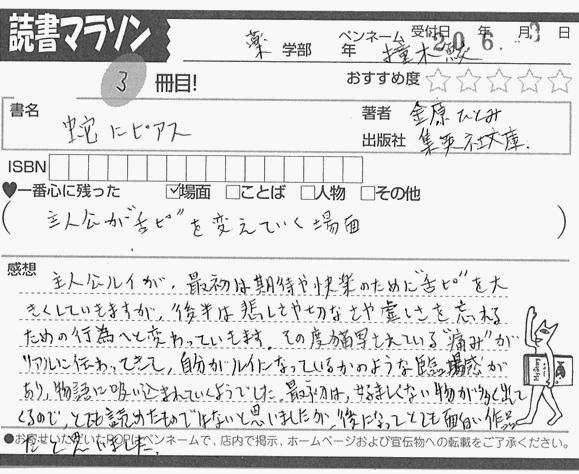 読書マラソン
薬 学部 年 ペンネーム 撞木鮫 受付日 20 年 6. 月 3 日
3 冊目! おすすめ度 ☆☆☆☆☆
書名 蛇にピアス 著者 金原ひとみ
出版社 集英社文庫.
ISBN
♥一番心に残った ☑場面 □ことば □人物 □その他
(主人公が"舌ピ"を変えていく場面)
感想
主人公ルイが、最初は期待や快楽のために"舌ピ"を大
きくしていきますが、後半は悲しさや切なさや虚しさを忘れる
ための行為へと変わっていきます。その度描写されている"痛み"が
リアルに伝わってきて、自分がルイになっているかのような臨場感が
あり、物語に吸い込まれていくようでした。最初は、好ましくない物が多く出て
くるので、とても読めたものではないと思いましたが、後になってとても面白い作品
だと思いました。
●お寄せいただいたPOPはペンネームで、店内で掲示、ホームページおよび宣伝物への転載をご了承ください。